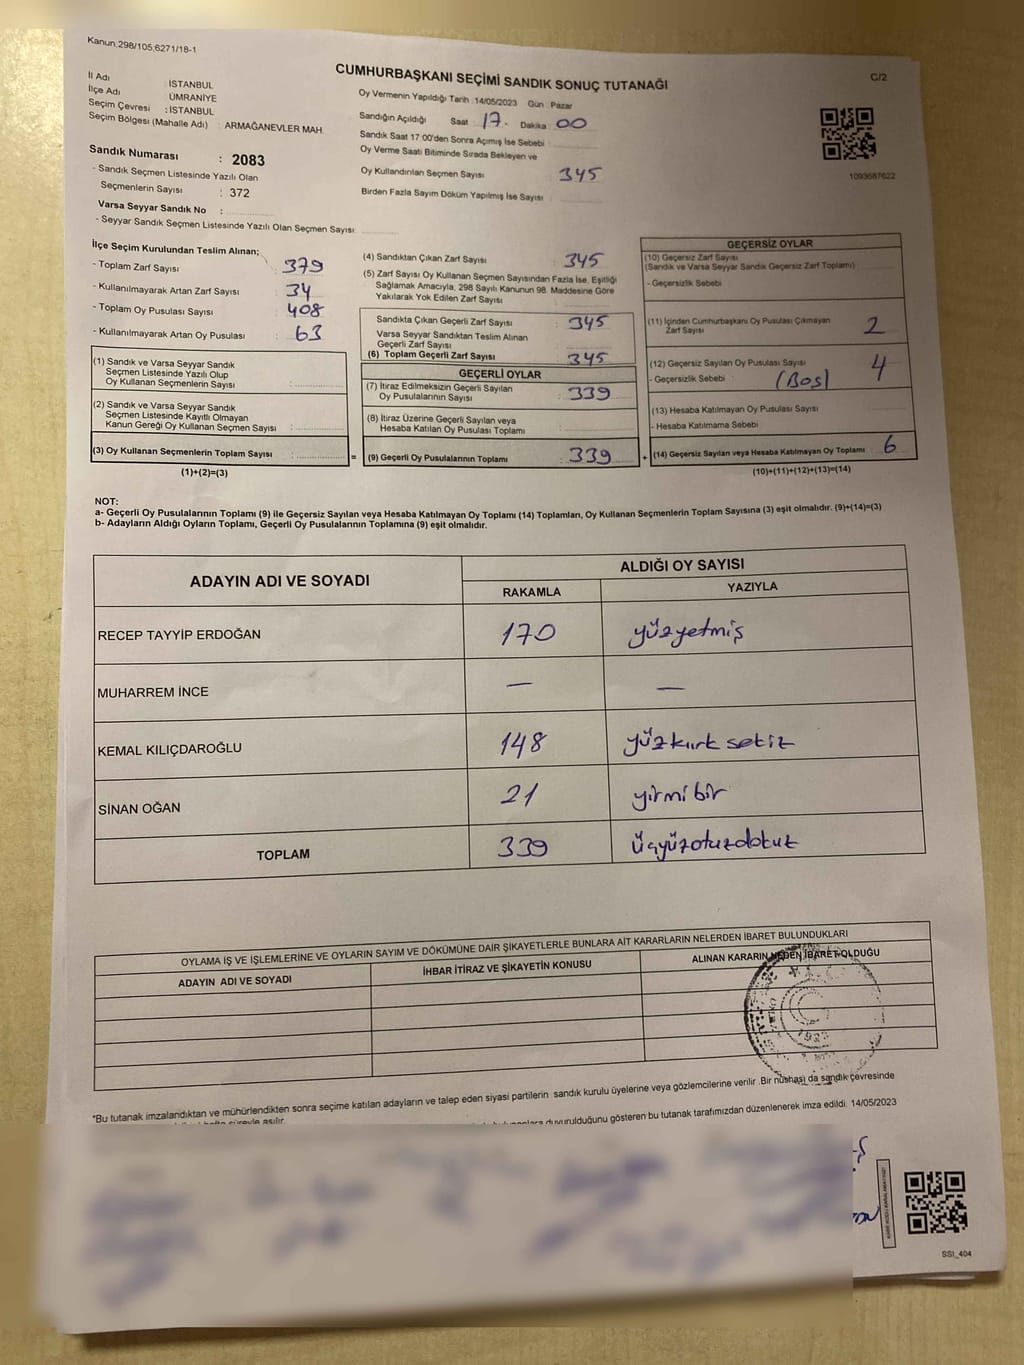 Kanun:298/105;6271/18-1
C/2
CUMHURBAŞKANI SEÇİMİ SANDIK SONUÇ TUTANAĞI
İl Adı : İSTANBUL
İlçe Adı : ÜMRANİYE
Seçim Çevresi : İSTANBUL
Seçim Bölgesi (Mahalle Adı) : ARMAĞANEVLER MAH.
Sandık Numarası : 2083
- Sandık Seçmen Listesinde Yazılı Olan
Seçmenlerin Sayısı : 372
Varsa Seyyar Sandık No :
- Seyyar Sandık Seçmen Listesinde Yazılı Olan Seçmen Sayısı:
Oy Vermenin Yapıldığı Tarih :14/05/2023 Gün : Pazar
Sandığın Açıldığı Saat : 17. Dakika 00
Sandık Saat 17:00'den Sonra Açımış İse Sebebi :
Oy Verme Saati Bitiminde Sırada Bekleyen ve
Oy Kullandırılan Seçmen Sayısı : 345
Birden Fazla Sayım Döküm Yapılmış İse Sayısı :
1093687622
İlçe Seçim Kurulundan Teslim Alınan;
- Toplam Zarf Sayısı : 379
- Kullanılmayarak Artan Zarf Sayısı : 34
- Toplam Oy Pusulası Sayısı : 408
- Kullanılmayarak Artan Oy Pusulası : 63
(1) Sandık ve Varsa Seyyar Sandık
Seçmen Listesinde Yazılı Olup
Oy Kullanan Seçmenlerin Sayısı :
(2) Sandık ve Varsa Seyyar Sandık
Seçmen Listesinde Kayıtlı Olmayan
Kanun Gereği Oy Kullanan Seçmen Sayısı :
(3) Oy Kullanan Seçmenlerin Toplam Sayısı :
(1)+(2)=(3)
(4) Sandıktan Çıkan Zarf Sayısı : 345
(5) Zarf Sayısı Oy Kullanan Seçmen Sayısından Fazla İse, Eşitliği
Sağlamak Amacıyla, 298 Sayılı Kanunun 98. Maddesine Göre
Yakılarak Yok Edilen Zarf Sayısı :
Sandıkta Çıkan Geçerli Zarf Sayısı : 345
Varsa Seyyar Sandıktan Teslim Alınan
Geçerli Zarf Sayısı :
(6) Toplam Geçerli Zarf Sayısı : 345
GEÇERLİ OYLAR
(7) İtiraz Edilmeksizin Geçerli Sayılan
Oy Pusulalarının Sayısı : 339
(8) İtiraz Üzerine Geçerli Sayılan veya
Hesaba Katılan Oy Pusulası Toplamı :
= (9) Geçerli Oy Pusulalarının Toplamı : 339
GEÇERSİZ OYLAR
(10) Geçersiz Zarf Sayısı
(Sandık ve Varsa Seyyar Sandık Geçersiz Zarf Toplamı)
- Geçersizlik Sebebi :
(11) İçinden Cumhurbaşkanı Oy Pusulası Çıkmayan
Zarf Sayısı : 2
(12) Geçersiz Sayılan Oy Pusulası Sayısı : 4
- Geçersizlik Sebebi : (Boş)
(13) Hesaba Katılmayan Oy Pusulası Sayısı :
- Hesaba Katılmama Sebebi :
+ (14) Geçersiz Sayılan veya Hesaba Katılmayan Oy Toplamı : 6
(10)+(11)+(12)+(13)=(14)
NOT:
a- Geçerli Oy Pusulalarının Toplamı (9) ile Geçersiz Sayılan veya Hesaba Katılmayan Oy Toplamı (14) Toplamları, Oy Kullanan Seçmenlerin Toplam Sayısına (3) eşit olmalıdır. (9)+(14)=(3)
b- Adayların Aldığı Oyların Toplamı, Geçerli Oy Pusulalarının Toplamına (9) eşit olmalıdır.
ADAYIN ADI VE SOYADI ALDIĞI OY SAYISI
RAKAMLA YAZIYLA
RECEP TAYYİP ERDOĞAN 170 yüzyetmiş
MUHARREM İNCE — —
KEMAL KILIÇDAROĞLU 148 yüzkırk sekiz
SİNAN OĞAN 21 yirmi bir
TOPLAM 339 üçyüzotuzdokuz
OYLAMA İŞ VE İŞLEMLERİNE VE OYLARIN SAYIM VE DÖKÜMÜNE DAİR ŞİKAYETLERLE BUNLARA AİT KARARLARIN NELERDEN İBARET BULUNDUKLARI
ADAYIN ADI VE SOYADI İHBAR İTİRAZ VE ŞİKAYETİN KONUSU ALINAN KARARIN NEDEN İBARET OLDUĞU
*Bu tutanak imzalandıktan ve mühürlendikten sonra seçime katılan adayların ve talep eden siyasi partilerin sandık kurulu üyelerine veya gözlemcilerine verilir .Bir nüshası da sandık çevresinde
hafta süreyle asılır.
duyurulduğunu gösteren bu tutanak tarafımızdan düzenlenerek imza edildi. 14/05/2023
SSI_404